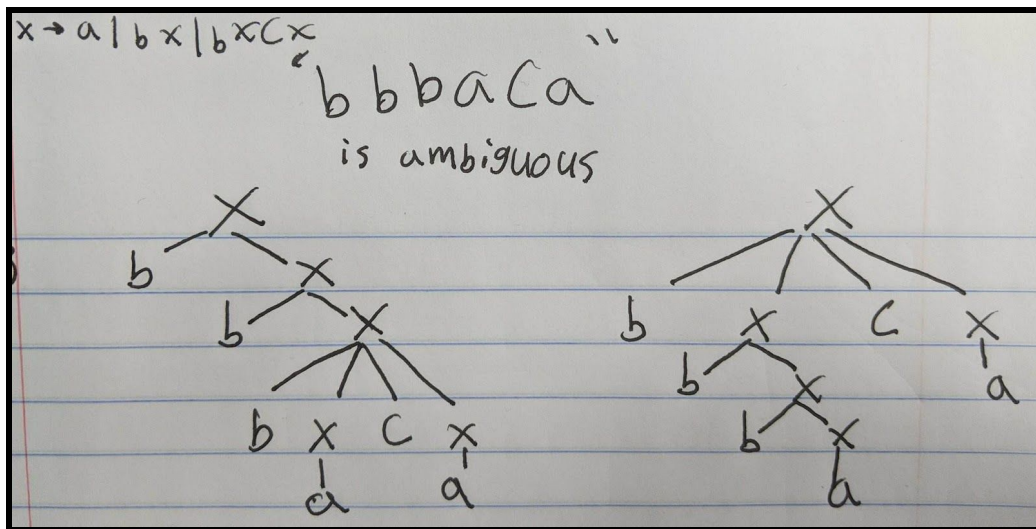 x → a | b x | b x C x
"b b b a C a"
is ambiguous
X X
b X
b X b X C X
b X a
b X C X b X
a a a